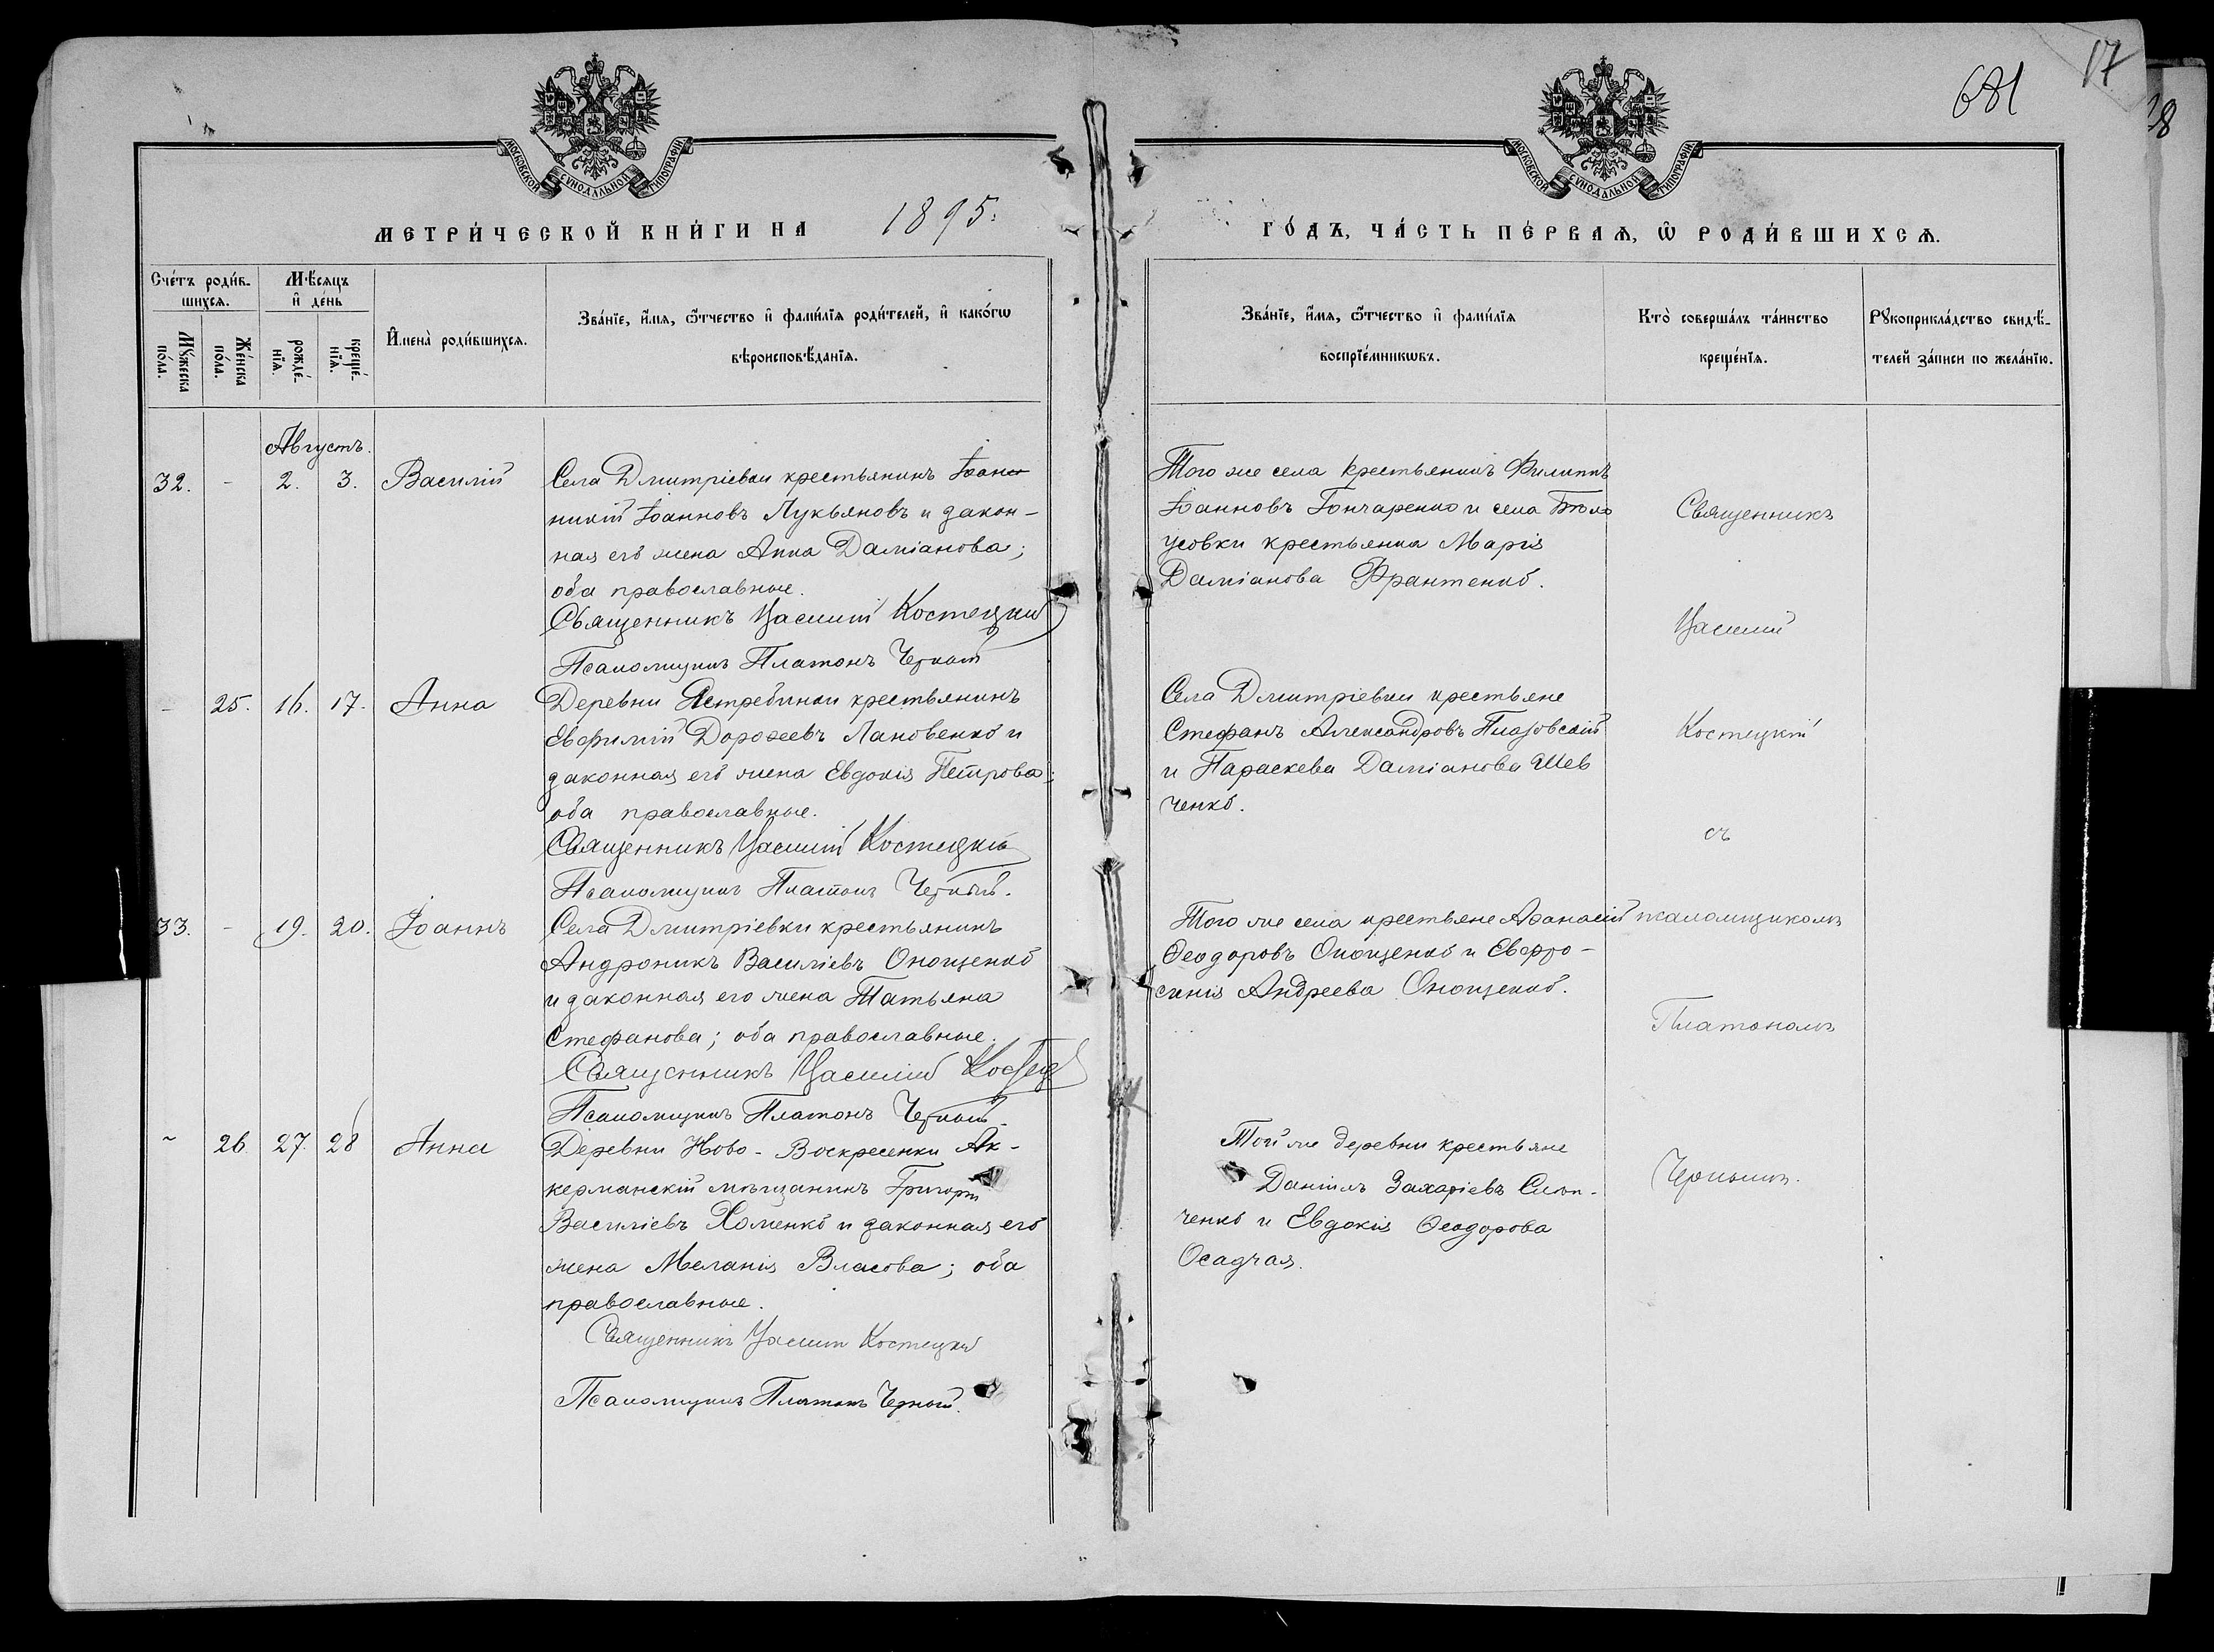 681
17
38
МОСКОВСКОЙ СѴНОДАЛЬНОЙ ТИПОГРАФІИ
МОСКОВСКОЙ СѴНОДАЛЬНОЙ ТИПОГРАФІИ
МЕТРИ́ЧЕСКОЙ КНИ́ГИ НА 1895.
ГО́ДЪ, ЧА́СТЬ ПЕ́РВАѦ, Ѡ҆ РОДИ́ВШИХСѦ.
Сче́тъ роди́в-
шихсѧ.
Мꙋ́жеска
по́ла.
Же́нска
по́ла.
Мѣ́сѧцъ
и҆ де́нь
рожде́-
нїѧ.
креще́-
нїѧ.
И҆мена̀ роди́вшихсѧ.
Зва́нїе, и҆́мѧ, ѻ҆́тчество и҆ фами́лїѧ роди́телей, и҆ како́гѡ
вѣроисповѣ́данїѧ.
Зва́нїе, и҆́мѧ, ѻ҆́тчество и҆ фами́лїѧ
воспрїе́мникѡвъ.
Кто̀ соверша́лъ та́инство
креще́нїѧ.
Рꙋкоприкла́дство свидѣ́-
телей за́писи по жела́нїю.
Августъ.
32. - 2. 3. Василій
Села Дмитріевки крестьянинъ Іоан-
никій Іоанновъ Лукьяновъ и закон-
ная его жена Анна Даміанова;
оба православные.
Священникъ Василій Костецкій
Псаломщикъ Платонъ Черный
Того же села крестьянинъ Филиппъ
Іоанновъ Гончаренко и села Бѣло
усовки крестьянка Марія
Даміанова Франтенко.
- 25. 16. 17. Анна
Деревни Ястребинки крестьянинъ
Евфимій Дороѳеевъ Лановенко и
законная его жена Евдокія Петрова;
оба православные.
Священникъ Василій Костецкій
Псаломщикъ Платонъ Черный.
Села Дмитріевки крестьяне
Стефанъ Александровъ
и Параскева Даміанова Шев
ченко.
33. - 19. 20. Іоаннъ
Села Дмитріевки крестьянинъ
Андроникъ Василіевъ Онощенко
и законная его жена Татьяна
Стефанова; оба православные.
Священникъ Василій
Псаломщикъ Платонъ Черный.
Того же села крестьяне Аѳанасій
Ѳеодоровъ Онощенко и Евфро-
синія Андреева Онощенко.
- 26 27. 28 Анна
Деревни Ново-Воскресенки Ак-
керманскій мѣщанинъ Григорій
Василіевъ Хоменко и законная его
жена Меланія Власова; оба
православные.
Священникъ Василій Костецкій
Псаломщикъ Платонъ Черный.
Той же деревни крестьяне
Даніилъ Захаріевъ
ченко и Евдокія Ѳеодорова
Осадчая.
Священникъ
Василій
Костецкій
съ
псаломщикомъ
Платономъ
Чернымъ.